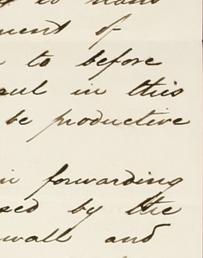 ment of
to before
in this
be productive
forwarding
by the
wall and